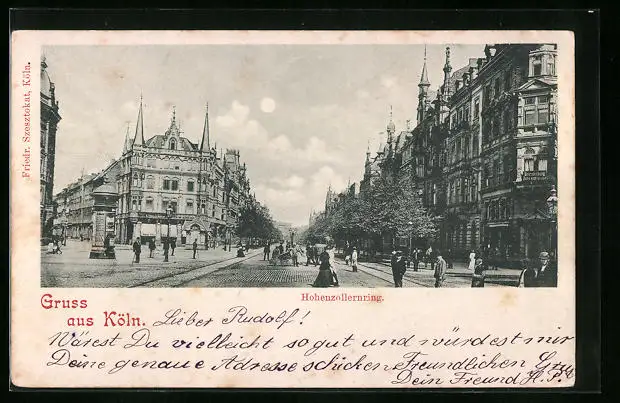 Friedr. Szesztokat, Köln.
Hohenzollernring.
Gruss
aus Köln. Lieber Rudolf!
Wärest Du vielleicht so gut und würdest mir
Deine genaue Adresse schicken Freundlichen Gruß
Dein Freund H. P.